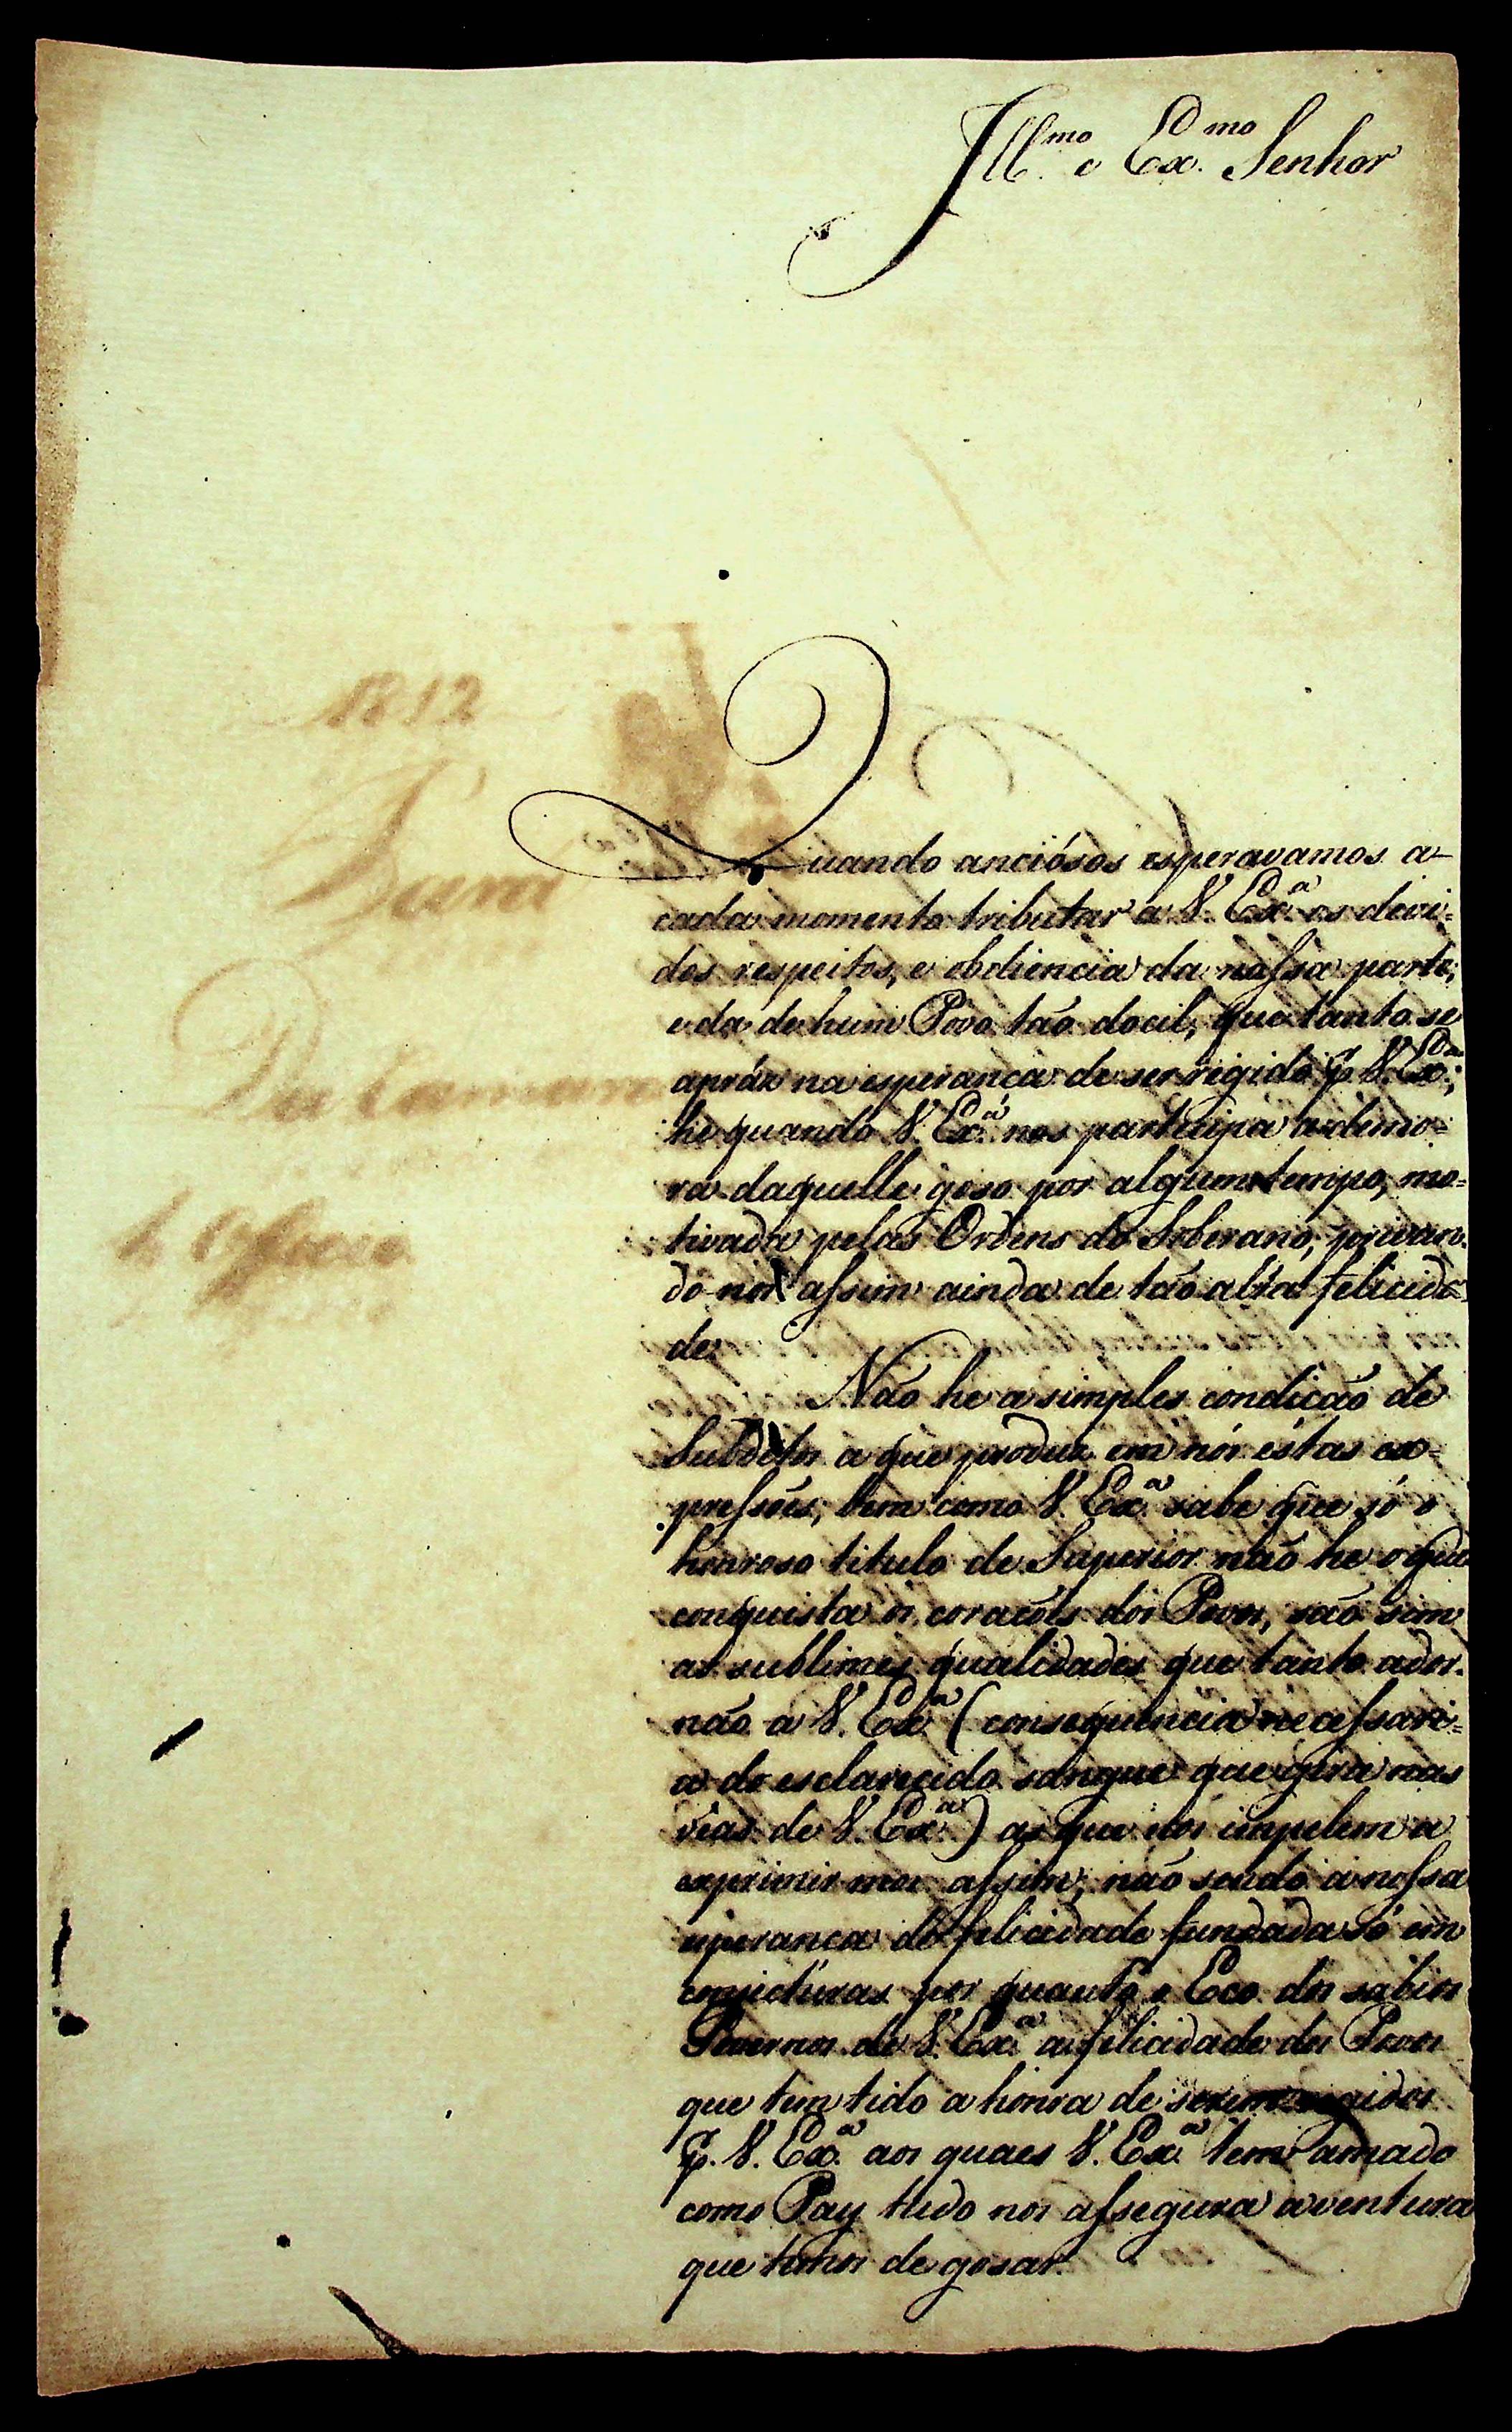 Ill.mo e Ex.mo Senhor
1812
Quando anciósos esperavamos a
cada momento tributar a V. Ex.a os devi=
dos respeitos, e obdiencia da nossa parte,
e da de hum Povo tão docil, que tanto se
apráz na esperanca de ser regido p. V. Ex.a;
he quando V. Ex.a nos participa a demo=
ra daquelle goso por algum tempo, mo=
tivada pelas Ordens do Soberano, privan=
do-nos assim ainda de tão alta felicida=
de.
Não he a simples condicão de
Subditos a que produz em nós éstas ex=
pressões, bem como V. Ex.a sabe que só o
honroso titulo de Superior não he o que
conquista os coracoẽs dos Povos, são sim
as sublimes qualidades que tanto ador=
não a V. Ex.a (consequencia necessari=
a do esclarecido sangue que gira nas
veas de V. Ex.a) as que nos impelem a
exprimir-mos assim; não sendo a nossa
esperanca de felicidade fundada só em
conjecturas por quanto o Eco dos sabios
Governos de V. Ex.a a felicidade dos Povos
que tem tido a honra de serem regidos
p. V. Ex.a aos quaes V. Ex.a tem amado
como Pay tudo nos assegura a ventura
que temos de gosar.